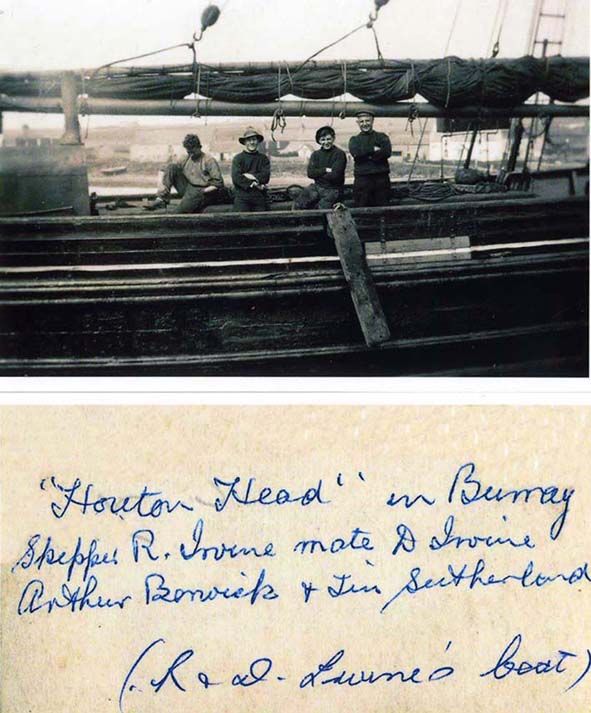 "Houton Head" in Burray
Skipper R. Irvine mate D Irvine
Arthur Berwick & Jim Sutherland
(R & D. Irvine's boat)